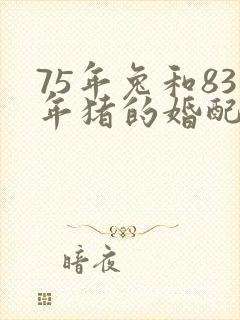 75年兔和83
年猪的婚配
暗夜